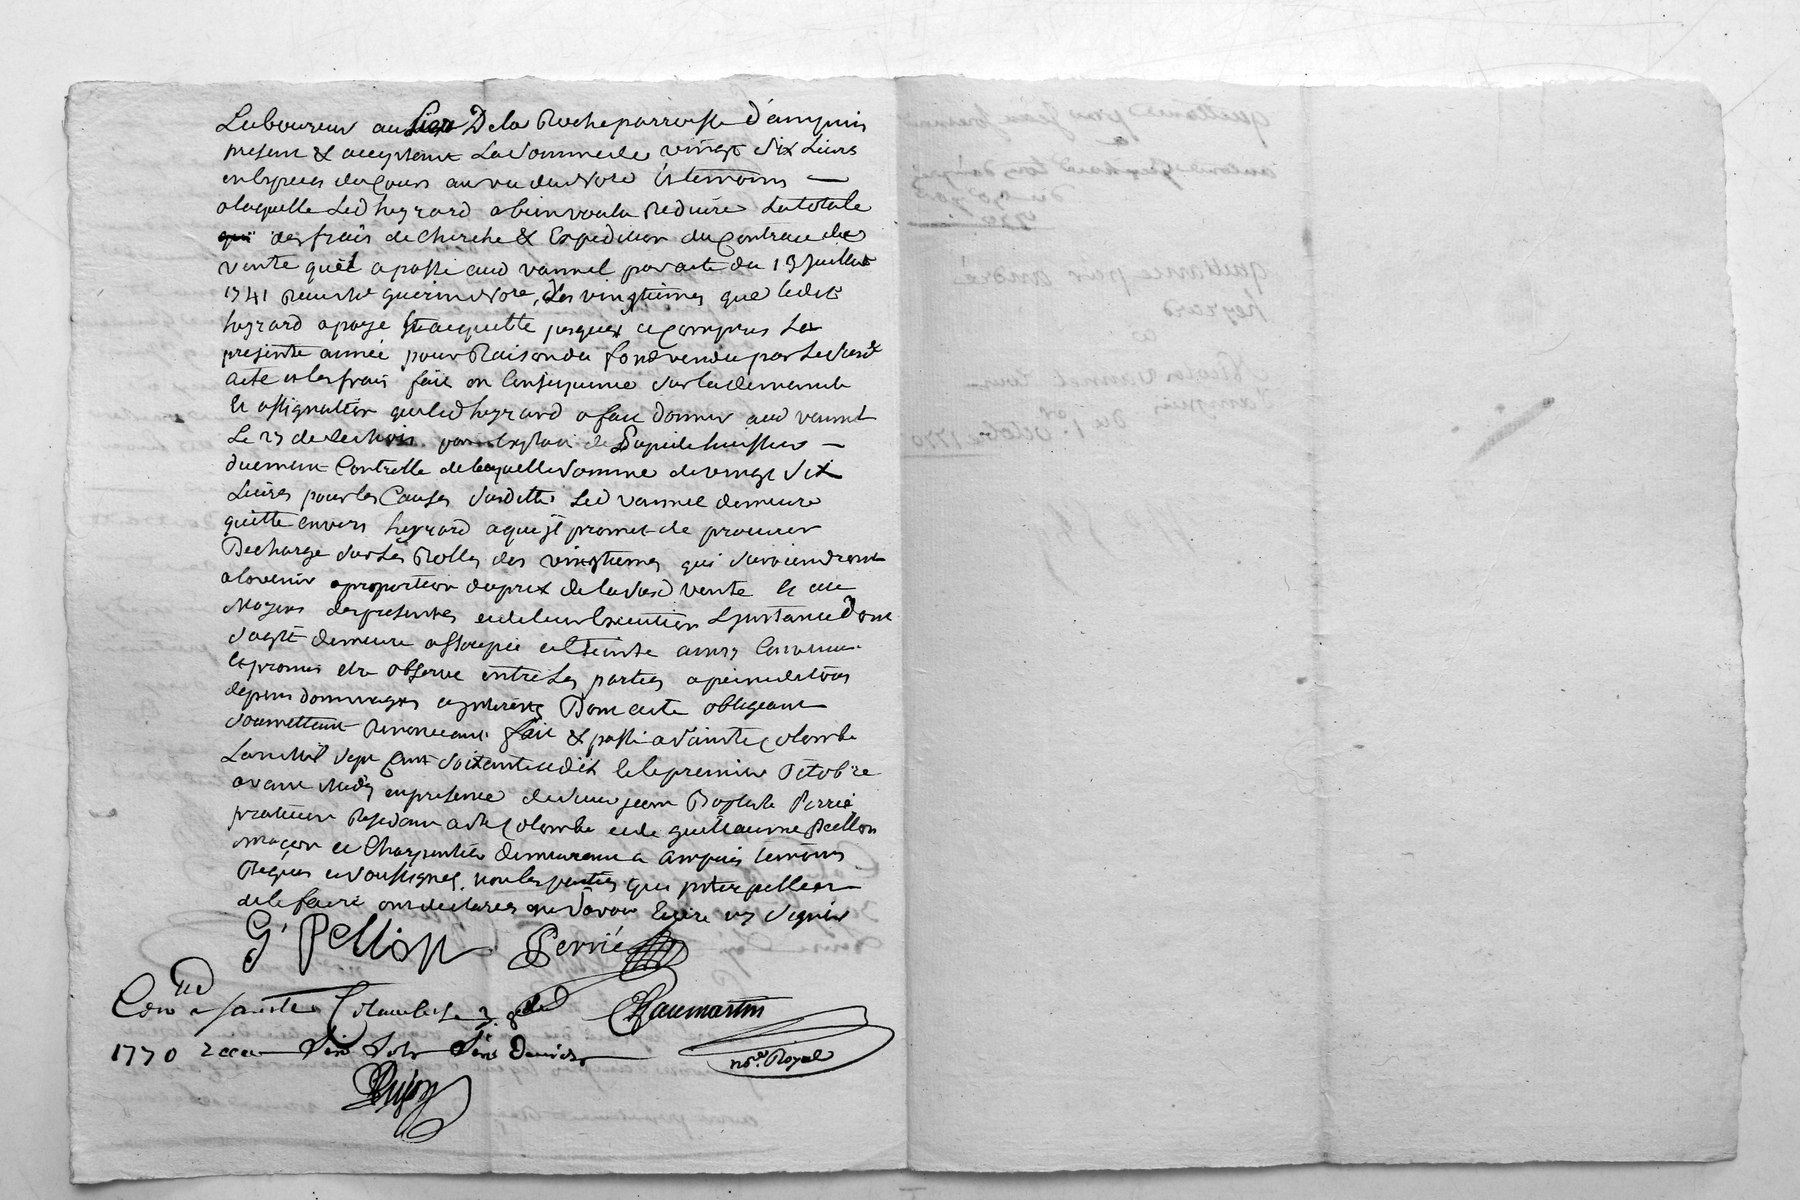 Laboureur au lieu De la Roche parroisse d'ampuis
present & acceptant La somme de vingt six Livres
en especes du Cours au vu du Nore & temoins —
a laquelle Led heyrard a bien voulu Reduire La totale
des frais de cherche & Expedition du Contrac de
vente quel a passé aud vannel par acte du 13 Juillet
1741 Reçu Me guerin Nore, Les vingtiemes que ledit
heyrard a payé & acquitté jusques ce Compris La
presente année pour Raison du fond vendu par Le susd
acte et les frais fait en Consequence sur la demande
Et assignation que led heyrard a fait donner aud vannel
Le 27 de ce mois par Exploit de huissier —
duement Controllé de laquelle somme de vingt six
Livres pour les Causes susdittes Led vannel demeure
quitte envers heyrard a qui jl promet de procurer
Decharge sur Les Rolles des vingtiemes qui surviendront
a lavenir a proportion du prix de la susd vente Et au
Moyens des presentes et de leur Execution Lynstance dont
sagit demeure assoupie et Eteinte ainsy Convenu
et promis etre observé entre Les parties a peine de tous
depens dommages et jnterets Dont acte obligeant
soumettant Renonceant fait & passé a sainte Colombe
Lan mil sept Cent soixante et dix & le premier Octobre
avant Midy en presence de sieur jean Baptiste Perrié
praticien Residant a Ste Colombe et de guillaume Pellon
maçon et Charpentier demeurant a ampuis temoins
Requis et soussignes, non les parties qui jnterpellées
de le faire ont declarées ne savoir Ecrire ny signer
G. Pellion Perrié
Con a sainte Colombe le 3. 8bre Chaumartin
1770 Recu six sols six deniers nore. Royal
quittance pour
a
quittance pour andré
heyrard
a
vannel
d'ampuis
du 1er octobre 1770